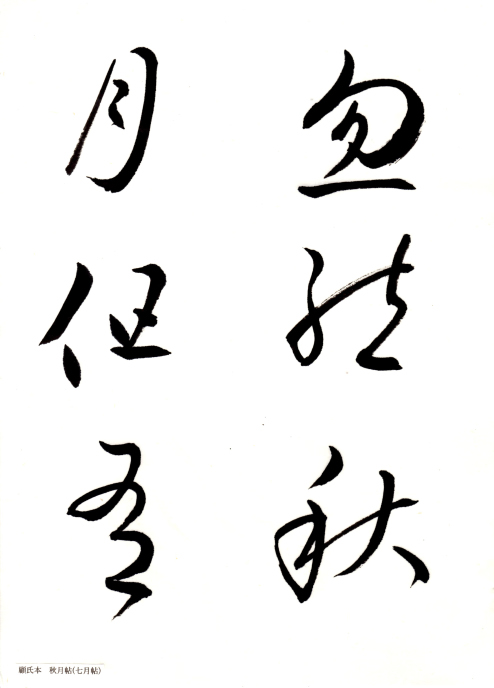 忽然秋
月但有
顧氏本　秋月帖(七月帖)